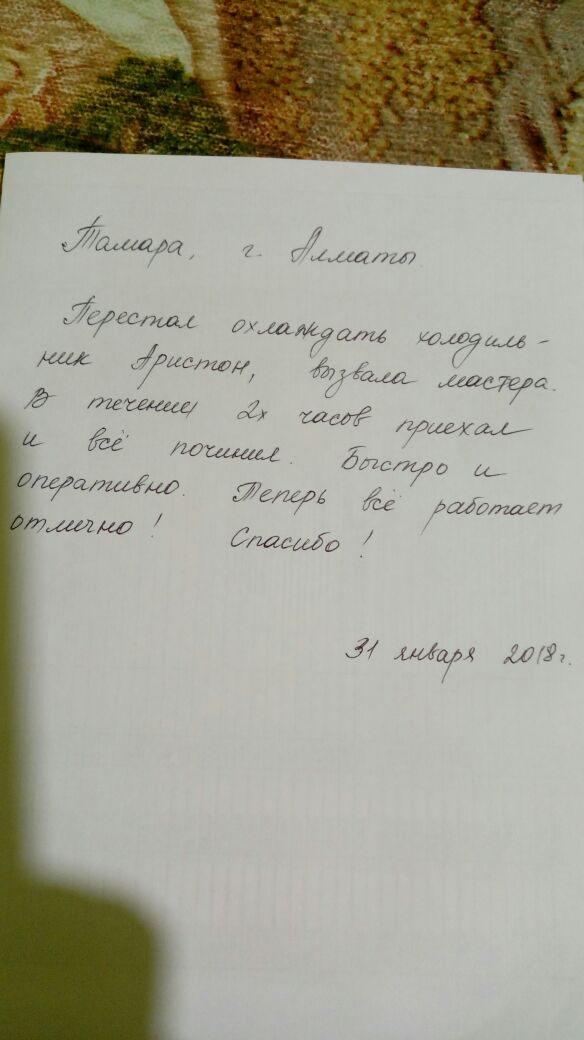 Тамара, г. Алматы.
Перестал охлаждать холодиль-
ник Аристон, вызвала мастера.
В течении 2х часов приехал
и всё починил. Быстро и
оперативно. Теперь всё работает
отлично! Спасибо!
31 января 2018г.